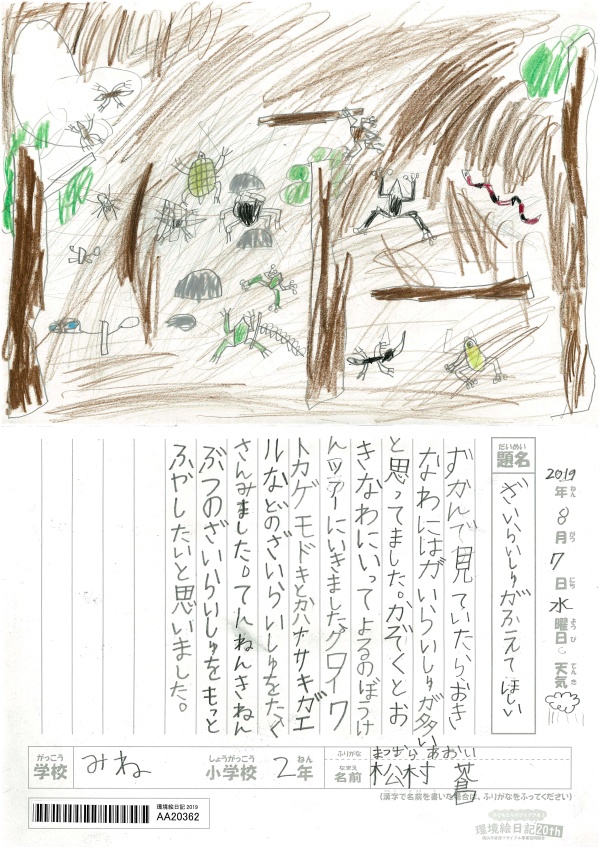 2019年8月7日水曜日 天気
ねん がつ にち ようび てんき
だいめい
題名
ざいらいしゅがふえてほしい
ずかんで見ていたらおき
なわにはガいらいしゅが多い
と思ってました。かぞくとお
きなわにいってよるのぼうけ
んツアーにいきました。クロイワ
トカゲモドキとかハナサキガエ
ルなどのざいらいしゅをたく
さんみました。てんねんきねん
ぶつのざいらいしゅをもっと
ふやしたいと思いました。
がっこう しょうがっこう ねん ふりがな あおい
学校 みね 小学校 2年 なまえ 名前 松村 蒼
(漢字で名前を書いた場合は、ふりがなをふってください)
環境絵日記 2019
AA20362
環境絵日記 20th